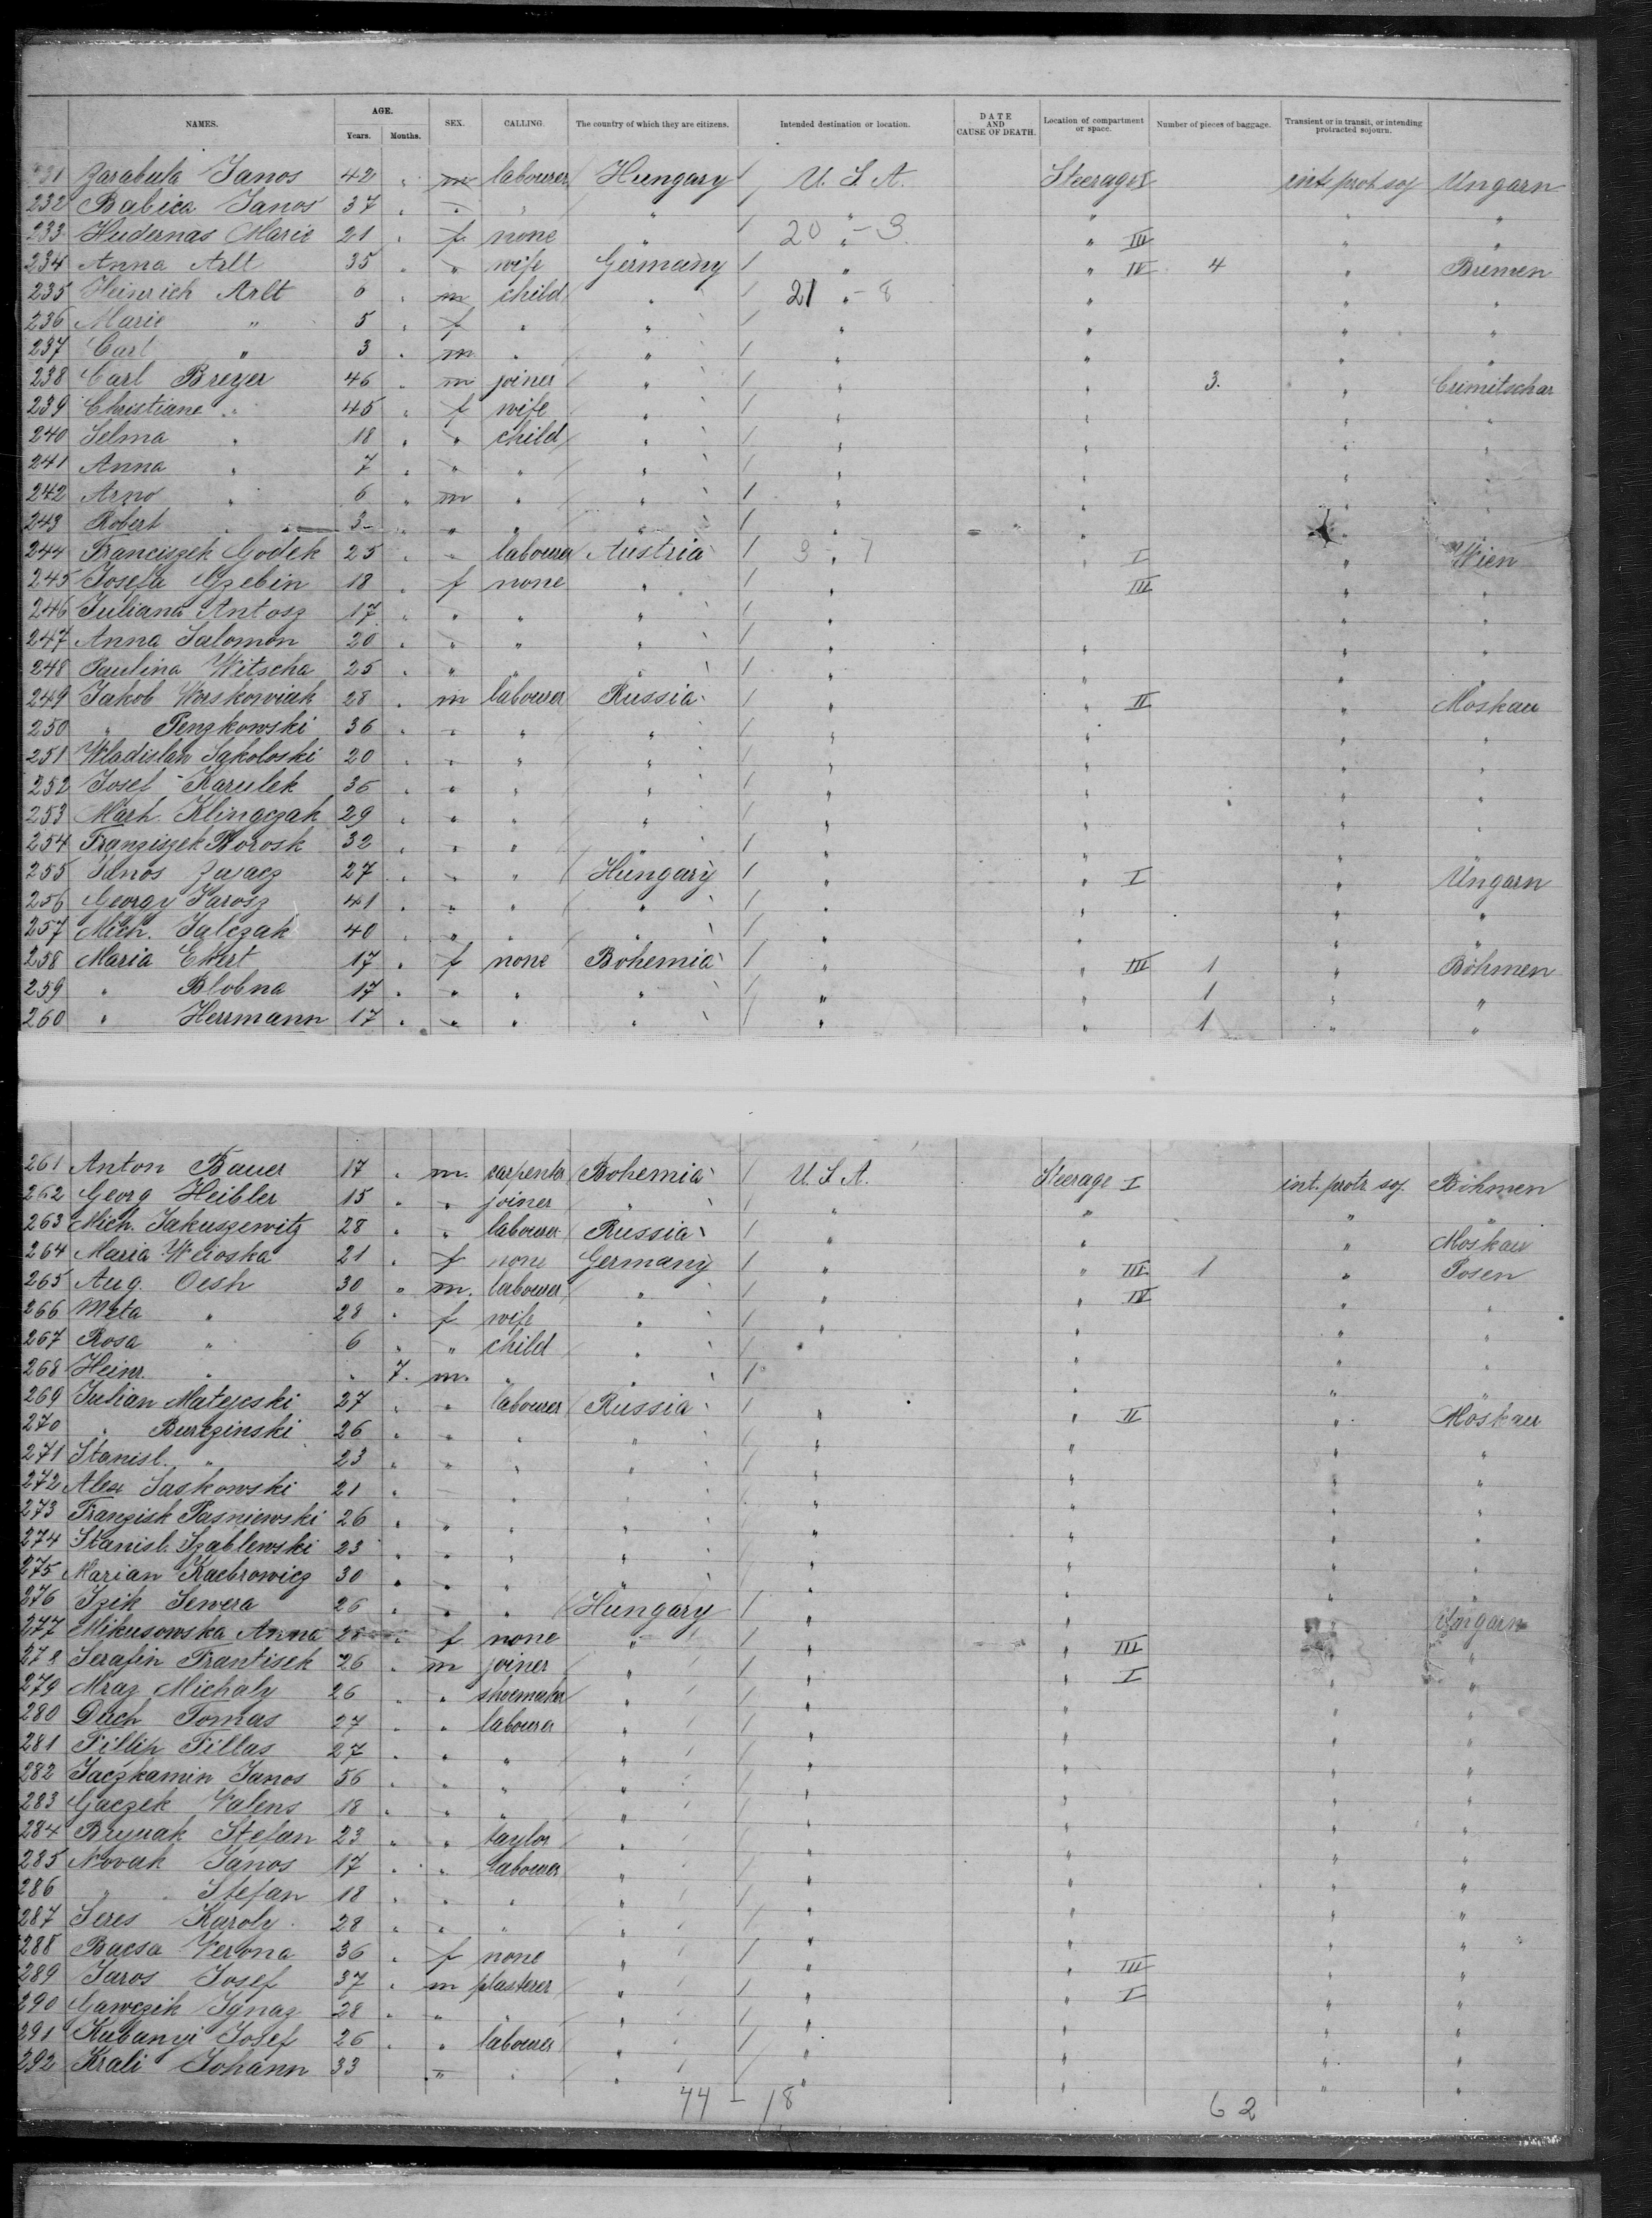 NAMES. AGE. Years. Months. SEX. CALLING. The country of which they are citizens. Intended destination or location. DATE AND CAUSE OF DEATH. Location of compartment or space. Number of pieces of baggage. Transient or in transit, or intending protracted sojourn.
231 Zarabula Janos 42 " m labourer Hungary / U. S. A. Steerage I int. prot. soj Ungarn
232 Babica Janos 37 " " " " / " " " "
233 Hudernas Marie 21 " f none " / 20 " - 3 " III " "
234 Anna Arlt 35 " " wife Germany / " " IV 4 " Bremen
235 Heinrich Arlt 6 " m child " / 21 " - 8 " " "
236 Marie " 5 " f " " / " " " "
237 Carl " 3 " m " " / " " " "
238 Carl Breyer 46 " m joiner " / " " 3. " Crimitschar
239 Christiane " 45 " f wife " / " " " "
240 Selma " 18 " " child " / " " " "
241 Anna " 7 " " " " / " " " "
242 Arno " 6 " m " " / " " " "
243 Robert " 3 " " " " / " " " "
244 Franciszek Godek 25 " " labourer Austria / 3 " 7 " I " Wien
245 Josefa Gzebin 18 " f none " / " III " "
246 Juliana Antosz 17 " " " " / " " " "
247 Anna Salomon 20 " " " " / " " " "
248 Paulina Witscha 25 " " " " / " " " "
249 Jakob Worskowiak 28 " m labourer Russia / " " II " Moskau
250 " Penzkowski 36 " " " " / " " " "
251 Wladislaw Sakoloski 20 " " " " / " " " "
252 Josef Karulek 36 " " " " / " " " "
253 Marh. Klingczak 29 " " " " / " " " "
254 Franziszek Borosk 32 " " " " / " " " "
255 Janos Zwacz 27 " " " Hungary / " " I " Ungarn
256 Georgy Jarosz 41 " " " " / " " " "
257 Mich. Jalczak 40 " " " " / " " " "
258 Maria Ewert 17 " f none Bohemia / " " III 1 " Böhmen
259 " Blobna 17 " " " " / " " 1 " "
260 " Herrmann 17 " " " " / " " 1 " "
261 Anton Bauer 17 " m. carpenter Bohemia / U. S. A. Steerage I int. protr. soj. Böhmen
262 Georg Heibler 15 " " joiner " / " " " "
263 Mich. Jakuszewitz 28 " " labourer Russia / " " " Moskau
264 Maria Weioska 21 " f none Germany / " " III 1 " Posen
265 Aug. Oesh 30 " m. labourer " / " " IV " "
266 Meta " 28 " f wife " / " " " "
267 Rosa " 6 " " child " / " " " "
268 Heinr. " " 7. m. " " / " " "
269 Julian Matejeski 27 " " labourer Russia / " " II " Moskau
270 " Burczinski 26 " " " " / " " " "
271 Stanisl. " 23 " " " " / " " " "
272 Alex Saskowski 21 " " " " / " " " "
273 Franzisk Pasniewski 26 " " " " / " " " "
274 Stanisl. Szablewski 23 " " " " / " " " "
275 Marian Kaebrowicz 30 " " " " / " " " "
276 Izik Sewera 26 " " " Hungary / " " " Ungarn
277 Mikusowska Anna 28 " f none " / " " III " "
278 Serafin Frantisek 26 " m joiner " / " " I " "
279 Mraz Michaly 26 " " shoemaker " / " " " "
280 Duch Tomas 27 " " labourer " / " " " "
281 Fillip Fillas 27 " " " " / " " " "
282 Jaczkamin Janos 56 " " " " / " " " "
283 Gaczek Valens 18 " " " " / " " " "
284 Brynak Stefan 23 " " taylor " / " " " "
285 Novak Janos 17 " " labourer " / " " " "
286 " Stefan 18 " " " " / " " " "
287 Seres Karoly 28 " " " " / " " " "
288 Bacsa Verona 36 " f none " / " " III " "
289 Jaros Josef 37 " m plasterer " / " " I " "
290 Gawczik Ignaz 28 " " " " / " " " "
291 Kubanyi Josef 26 " " labourer " / " " " "
292 Krali Johann 33 " " " / " " " "
44 - 18 62